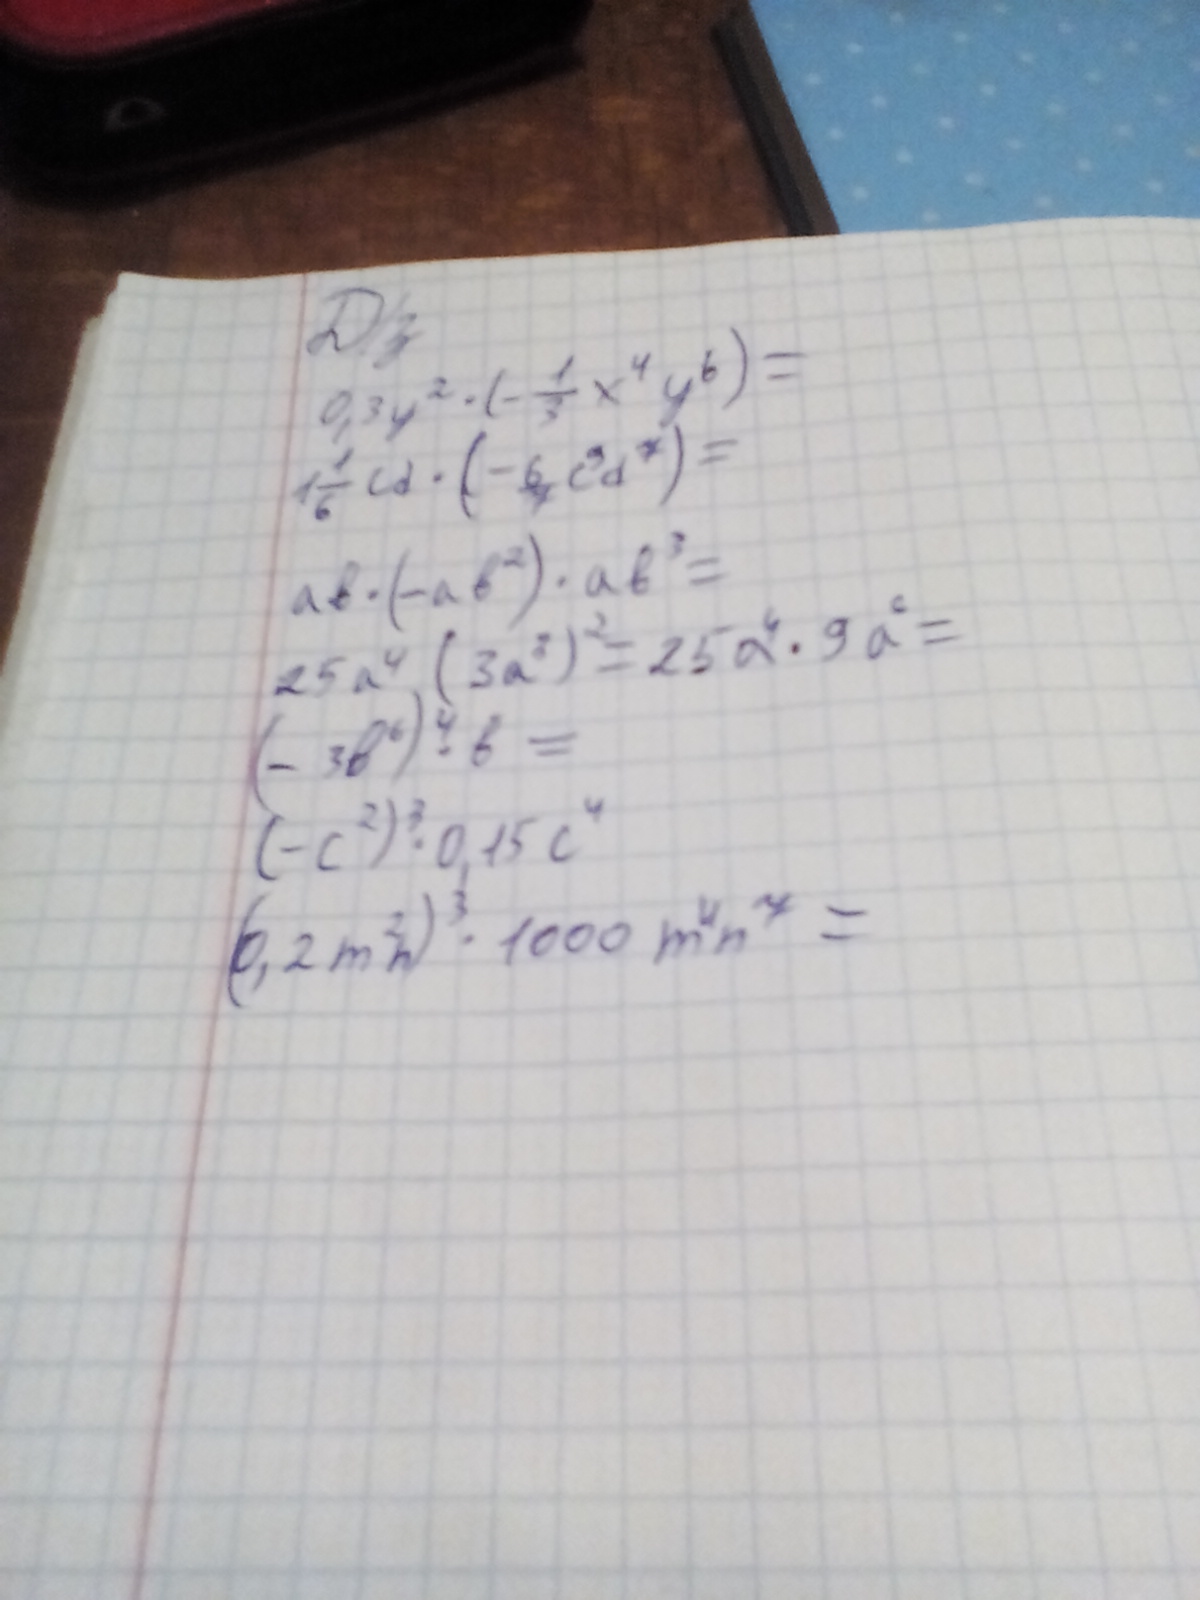 Д/з
0,3y² · (-1/3 x⁴ y⁶) =
1 1/6 cd · (-6/7 c⁹d⁷) =
ab · (-ab²) · ab³ =
25a⁴ (3a³)² = 25a⁴ · 9a⁶ =
(- 3b⁶)⁴ · b =
(-c²)³ · 0,15 c⁴
(0,2 m²n)³ · 1000 m⁴n⁷ =